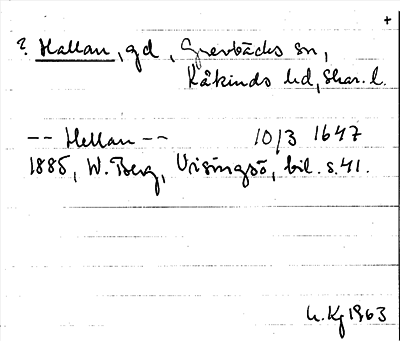 +
? Hallan, gd, Grevbäcks sn,
Kåkinds hd, Skar. l.
-- Hellan -- 10/3 1647
1885, W. Berg, Visingsö, bil. s. 41.
h. Kg 1963